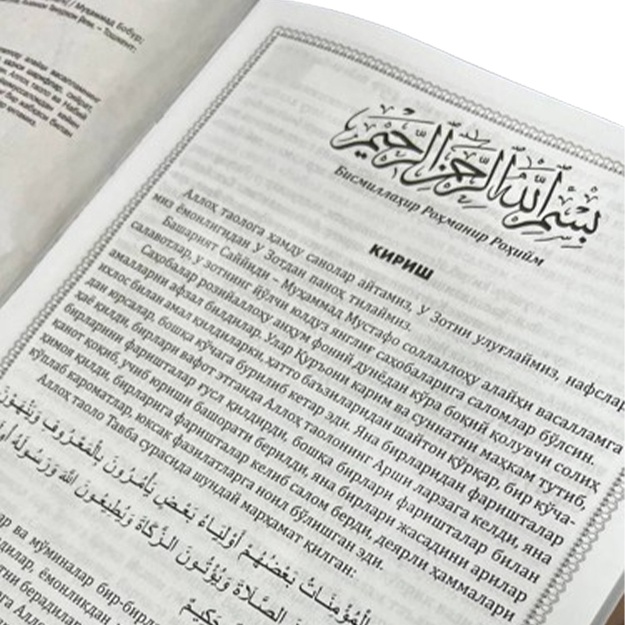 Муҳаммад Бобур;
Тошкент:
بسم الله الرحمن الرحيم
Бисмиллаҳир Роҳманир Роҳийм
КИРИШ
Аллоҳ таолога ҳамду санолар айтамиз, у Зотни улуғлаймиз, нафслар
миз ёмонлигидан у Зотдан паноҳ тилаймиз.
Башарият Саййиди – Муҳаммад Мустафо соллаллоҳу алайҳи васалламга
салавотлар, у зотнинг йўлчи юлдуз янглиғ саҳобаларига саломлар бўлсин.
Саҳобалар розийаллоҳу анҳум фоний дунёдан кўра боқий қолувчи солиҳ
амалларни афзал билдилар. Улар Қуръони карим ва суннатни маҳкам тутиб,
ихлос билан амал қилдиларки, ҳатто баъзиларидан шайтон қўрқар, бир кўча-
дан юрсалар, бошқа кўчага бурилиб кетар эди. Яна бирларидан фаришталар
ҳаё қилди, бирлари вафот этганда Аллоҳ таолонинг Арши ларзага келди, яна
бирларини фаришталар ғусл қилдирди, бошқа бирлари фаришталар билан
қанот қоқиб, учиб юриши башорати берилди, яна бирлари жасадини арилар
ҳимоя қилди, бирларига фаришталар келиб салом берди, деярли ҳаммалари
кўплаб кароматлар, юксак фазилатларга ноил бўлишган эди.
Аллоҳ таоло Тавба сурасида шундай марҳамат қилган:
الْمُؤْمِنَاتُ بَعْضُهُمْ أَوْلِيَاءُ بَعْضٍ يَأْمُرُونَ بِالْمَعْرُوفِ وَيَنْهَوْنَ
الصَّلَاةَ وَيُؤْتُونَ الزَّكَاةَ وَيُطِيعُونَ اللَّهَ وَرَسُولَهُ
حَكِيمٌ
ар ва мўминалар бир-бирла
дилар, ёмонликдан
тни берадилар
га Алло